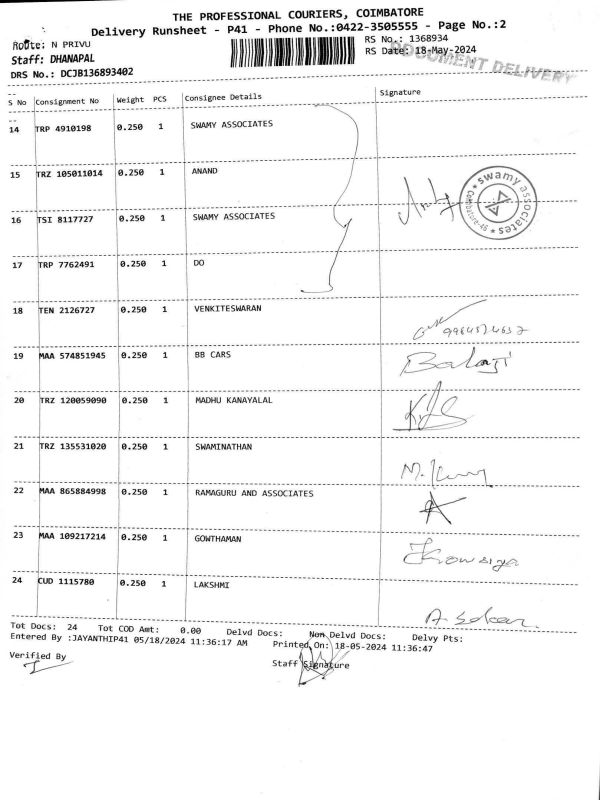 THE PROFESSIONAL COURIERS, COIMBATORE
Delivery Runsheet - P41 - Phone No.:0422-3505555 - Page No.:2
Route: N PRIVU
RS No.: 1368934
Staff: DHANAPAL
RS Date: 18-May-2024
DOCUMENT DELIVERY
DRS No.: DCJB136893402
S No Consignment No Weight PCS Consignee Details Signature
14 TRP 4910198 0.250 1 SWAMY ASSOCIATES
15 TRZ 105011014 0.250 1 ANAND
swamy associates
Coimbatore-46
16 TSI 8117727 0.250 1 SWAMY ASSOCIATES
17 TRP 7762491 0.250 1 DO
18 TEN 2126727 0.250 1 VENKITESWARAN
19 MAA 574851945 0.250 1 BB CARS Balaji
20 TRZ 120059090 0.250 1 MADHU KANAYALAL
21 TRZ 135531020 0.250 1 SWAMINATHAN
22 MAA 865884998 0.250 1 RAMAGURU AND ASSOCIATES
23 MAA 109217214 0.250 1 GOWTHAMAN
24 CUD 1115780 0.250 1 LAKSHMI
Tot Docs: 24 Tot COD Amt: 0.00 Delvd Docs: Non Delvd Docs: Delvy Pts:
Entered By :JAYANTHIP41 05/18/2024 11:36:17 AM Printed On: 18-05-2024 11:36:47
Verified By
Staff Signature